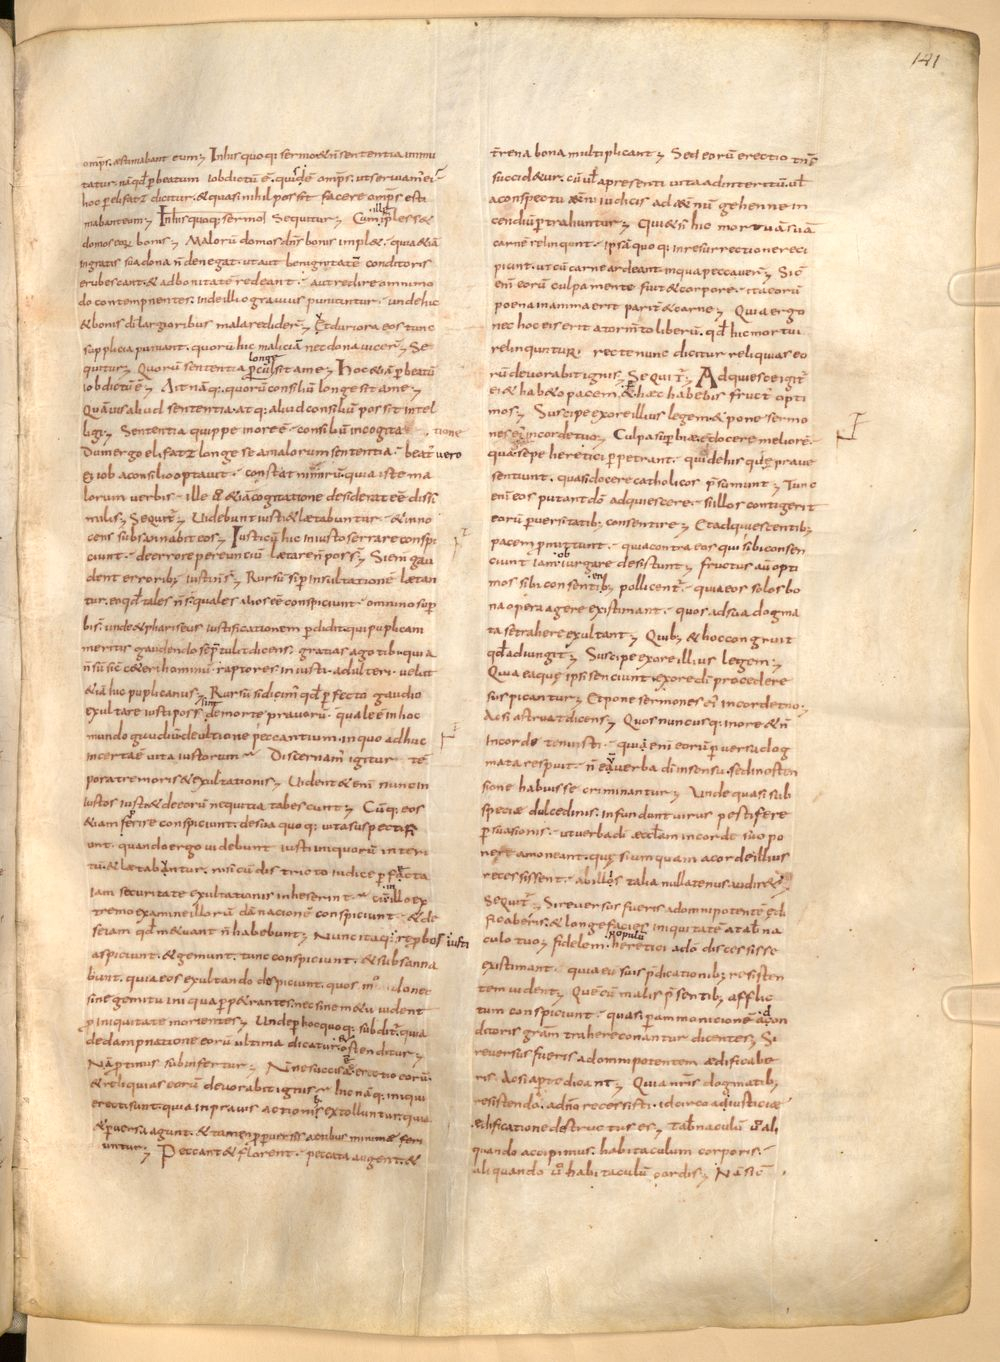 141
omps. æstimabant eum; In his quoq; sermo & n̄ sententia immu
tatur. nā qd̄ p beatum iob dictū ē. qui dē omps. ut serviam ei
hoc p elifaz dicitur. & quasi nihil possit facere omps esti
mabant eum; In his quoq; sermo; Sequitur; Cum ille implesset
domos eorū bonis; Malorū domos dn̄s bonis implet. quia & iā
ingratis sua dona n̄ denegat. ut aut benignitatē conditoris
erubescant. & ad bonitatē redeant. aut redire omnimo
do contempnentes. inde illic gravius puniantur. unde hic
& bonis dī largioribus mala reddider̄; Et duriora eos tunc
supplicia puniant. quorū hic maliciā nec dona vicer̄; Se
quitur; Quorū sententia longe procul sit a me; Hoc & iā p beatū
iob dictū ē; Ait nāq; quorū consiliū longe sit a me;
Quāvis aliud sententia. atq; aliud consiliū possit intel
ligi; Sententia quippe in ore ē. consiliū in cogitatione
Dum ergo elifaz longe se a malorum sententia. beat vero
iob a consilio optavit. constat nimirū. quia iste ma
lorum verbis. ille & iā cogitatione desiderat eē dissi
milis; Sequit̄; Videbunt iusti & lætabuntur. & inno
cens subsannabit eos; Iusti cū hic iniustos errare conspi
ciunt. de errore pereunciū lætare n̄ poss̄; Si enī gau
dent erroribꝫ iusti n̄ s̄; Rursū si p insultationē lætan
tur. eo qd̄ tales n̄ s̄. quales alios eē conspiciunt. omnino sup
bi s̄. unde & phariseus iustificationem pdidit. qui puplicani
meritis gaudendo se ptulit dicens. gratias ago tibi quia
n̄ sū sic & ceteri hominū. raptores. iniusti. adulteri. velut
& iā hic puplicanus; Rursū si dicim̄ qd̄ pfecto gaudio
exultare iusti poss sint de morte pravorū. quale ē in hoc
mundo gaudiū de ultione peccantium. in quo adhuc
incerta ē vita iustorum. Discernam̄ igitur tē
pora tremoris & exultationis; Vident & enī nunc in
iustos iusti. & de eorū nequitia tabescunt; Cūq; eos
& iam ferire conspiciunt. de sua quoq; vita suspecti fi
unt. quando ergo videbunt iusti iniquorū interi
tū. & lætabūntur. nisi cū districto iudice pfecta
iam securitate exultationis inheserint. cū in illo ex
tremo examine illorū dānacionē conspiciunt. & de
se iam qd̄ metuant n̄ habebunt; Nunc itaq; reprobos iusti
aspiciunt. & gemunt. tunc conspiciunt. & subsanna
bunt. quia eos exultando despiciunt. quos modo nec
sine gemitu iniqua ppetrantes. nec sine metu vident
p iniquitate morientes; Unde p hoc quoq; subdit̄. quia
de dampnatione eorū ultima dicatur. ostenditur;
Nā ptinus subinfertur; Nonne succisa ē erectio eorū.
& reliquias eorū devorabit ignis. Hic nāq; iniqui
erecti sunt. quia in pravis actionibꝫ extolluntur. quia
& pversa agunt. & tamen p pversis actibus minime feri
untur; Peccant & florent. peccata augent. &
terrena bona multiplicant; Sed eorū erectio tūc
succiditur. cū ul̄ a presenti vita ad interitū. ul̄
a conspectu æterni iudicis ad æternū gehenne in
cendiū ptrahuntur; Qui & n̄ hic mortuā suā
carnē relinqunt. ipsā quoq; in resurrectione reci
piunt. ut cū carne ardeant in qua peccaver̄; Sic
enī eorū culpa mente fuit & corpore. ita eorū
poena in anima erit parit̄ & carne; Quia ergo
nec hoc eis erit a torm̄to liberū. qd̄ hic mortui
relinquntur. recte nunc dicitur reliquias eo
rū devorabit ignis; Sequit̄; Adquiesce igit̄
ei & habeto pacem. & p hæc habebis fruct̄ opti
mos; Suscipe ex ore illius legem. & pone sermo
nes ei in corde tuo; Culpa supbiæ ē docere meliorē.
quā sepe heretici ppetrant. qui de his que prave
sentiunt. quasi docere catholicos psumunt; Tunc
enī eos putant dō adquiescere. si illos contigerit
eorū pversitatibꝫ consentire; Et adquiescentibꝫ
pacem pmittunt. quia contra eos qui sibi consen
ciunt iam iurgare desistunt; fructus aū opti
mos sibi consentientibꝫ pollicent̄. quia eos solos bo
na opera agere existimant. quos ad sua dogma
ta se trahere exultant; Quibꝫ & hoc congruit
qd̄ adiungit; Suscipe ex ore illius legem;
Quia ea que ipsi senciunt ex ore dī procedere
suspicantur; Et pone sermones ei in corde tuo;
Ac si astruat dicens; Quos nunc usq; in ore & n̄
in corde tenuisti. quia enī eorū pversa dog
mata respuit. n̄ eā verba dī in sensu. sed in osten
sione habuisse criminantur; Unde quasi sub
specie dulcedinis. infundunt virus pestifere
psuasionis. ut verba dī æcclam in corde suo po
nere amoneant. que si umquam a corde illius
recessissent. ab illis talia nullatenus audir&
Sequit̄; Si reversus fueris ad omnipotentē ędi
ficaberis. & longe facies iniquitatē a tabna
culo tuo; fidelem populū heretici a dō discessisse
existimant. quia eū suis pdicationibꝫ resisten
tem vident; Quē cū malis psentibꝫ afflic
tum conspiciunt. quasi p ammonicionē ad con
ditoris gram̄ trahere conantur dicentes; Si
reversus fueris ad omnipotentem ædificabe
ris. Ac si apte dicant; Quia nr̄is dogmatibꝫ
resistendo. a dnō recessisti. idcirco ad iusticiæ
edificatione destructus es; Tabnaculū ū ali
quando accipimus. habitaculum corporis.
aliquando ū habitaculū cordis; Nā sic